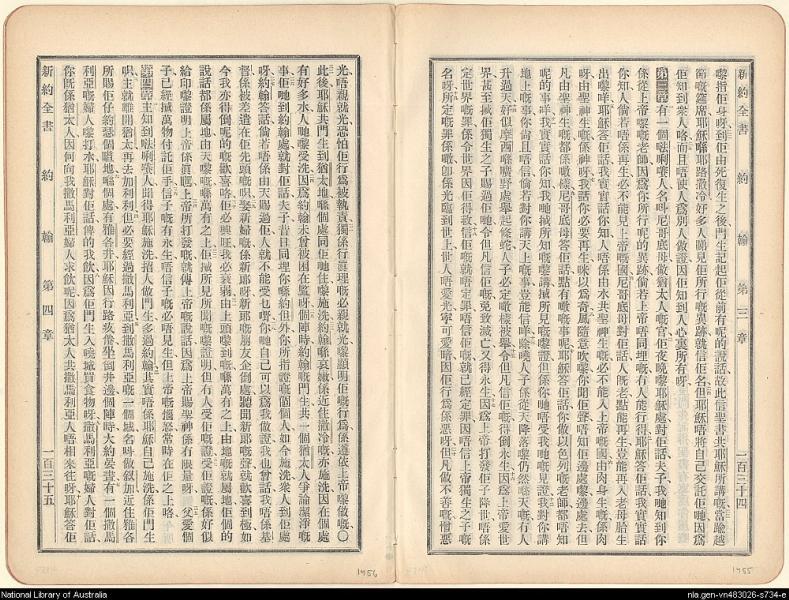 新約全書 約翰 第三章 一百三十四
嚟指佢身呀到佢由死復生之後門生記起佢從前有呢的說話故此信聖書共耶穌所講嘅當踰越
節嘅筵席耶穌喺耶路撒冷好多人睇見佢所行嘅異跡就信佢名但耶穌唔將自己交託佢哋因爲
佢知到衆人咯而且唔使人爲別人做證因佢知到人心裏所有呀
第三章有一個𠵽唎賽人名叫尼哥底母做猶太人嘅官佢夜晚嚟耶穌處對佢話夫子我哋知到你
係從上帝嚟嘅老師因爲你所行呢的異跡倘若上帝唔同埋嘅冇人能行得耶穌答佢話我實實話
你知人倘若唔係再生必不能見上帝嘅國尼哥底母對佢話人旣老點能再生豈能再入老母胎生
出嚟咩耶穌答佢話我實實話你知人唔係由水共聖神生嘅必不能入上帝嘅國由肉身生嘅係肉
呀由聖神生嘅係神呀我話你必要再生咪以爲奇風隨意吹嚟你聞佢聲唔知佢邊處嚟邊處去但
凡由聖神生嘅都係噉樣尼哥底母答佢話點有噉樣事呢耶穌答佢話你做以色列嘅老師都唔知
呢的事咩我實實話你知我哋搣所知嘅嚟講搣所見嘅嚟證但係你哋唔受我哋嘅見證我對你講
地上嘅事你尙且唔信倘若對你講天上嘅事豈能信咩除嘵人子係從天降落嚟仍然喺天嘅冇人
升過天好似摩西喺曠野處舉起條蛇人子必定噉樣被舉令但凡信佢嘅得倒永生因爲上帝愛世
界甚至搣佢獨生之子賜過佢哋令但凡信佢嘅免致滅亡又得永生因爲上帝打發佢子降世唔係
定世界嘅罪係令世界因佢得救信佢嘅就唔定罪唔信佢嘅就已經定罪因唔信上帝獨生之子嘅
名呀所定嘅罪係噉卽係光臨到世上世人唔愛光寧可愛暗因佢行爲係惡呀但凡做不善嘅憎惡
1455
光唔親就光恐怕佢行爲被執責獨係行眞理嘅必親就光嚟顯明佢嘅行爲係遵依上帝嚟做嘅〇
此後耶穌共門生到猶太地喺個處同佢哋住嚟施洗約翰喺哀嫩係近住撒冷嘅亦施洗因在個處
有好多水人哋嚟受洗因爲約翰未曾被困在監呀個陣時約翰嘅門生共一個猶太人爭論潔淨嘅
事佢哋到約翰處就對佢話夫子昔日同埋你喺約但外你所指證嘅個個人如今施洗衆人到佢處
呀約翰答話倘若唔係由天賜過佢人就不能受乜嘢你哋自己可以爲我做證我也曾話我唔係基
督係被差遣在佢先頭嘅唄娶新婦嘅係新郎呀新郎嘅朋友企倒處聽聞新郎嘅聲就歡喜到極如
今我亦得倒呢的嘅歡喜咯佢必興旺我必衰弱由上頭嚟到嘅喺萬有之上由地嘅就屬地佢個的
說話都係屬地由天嚟嘅喺萬有之上佢搣所見所聞嘅嚟證明但冇人受佢嘅證受佢證嘅係好似
給印嚟證明上帝係眞嘅上帝所打發嘅就傳上帝嘅說話因爲上帝賜聖神係冇限量呀父愛個
子已經搣萬物付託佢手信子嘅有永生唔信子嘅必唔見生但上帝嘅惱怒常時在佢之上咯
第四章主知到𠵽唎賽人聞得耶穌施洗招人做門生多過約翰其實唔係耶穌自己施洗係佢門生
唄主就離開猶太再去加利利但必要經過撒馬利亞到撒馬利亞嘅一個城名叫做叙加近住雅各
所賜佢仔約瑟個幅地喺個處有雅各井耶穌因行路疲倦坐倒井邊個陣時大約晏晝有一個撒馬
利亞嘅婦人嚟打水耶穌對佢話俾的我飲因爲佢門生入曉城買食物呀撒馬利亞嘅婦人對佢話
你旣係猶太人因何向我撒馬利亞婦人求飲呢因爲猶太人共撒馬利亞人唔相來往呀耶穌答佢
新約全書 約翰 第四章 一百三十五
1456
National Library of Australia
nla.gen-vn483026-s734-e